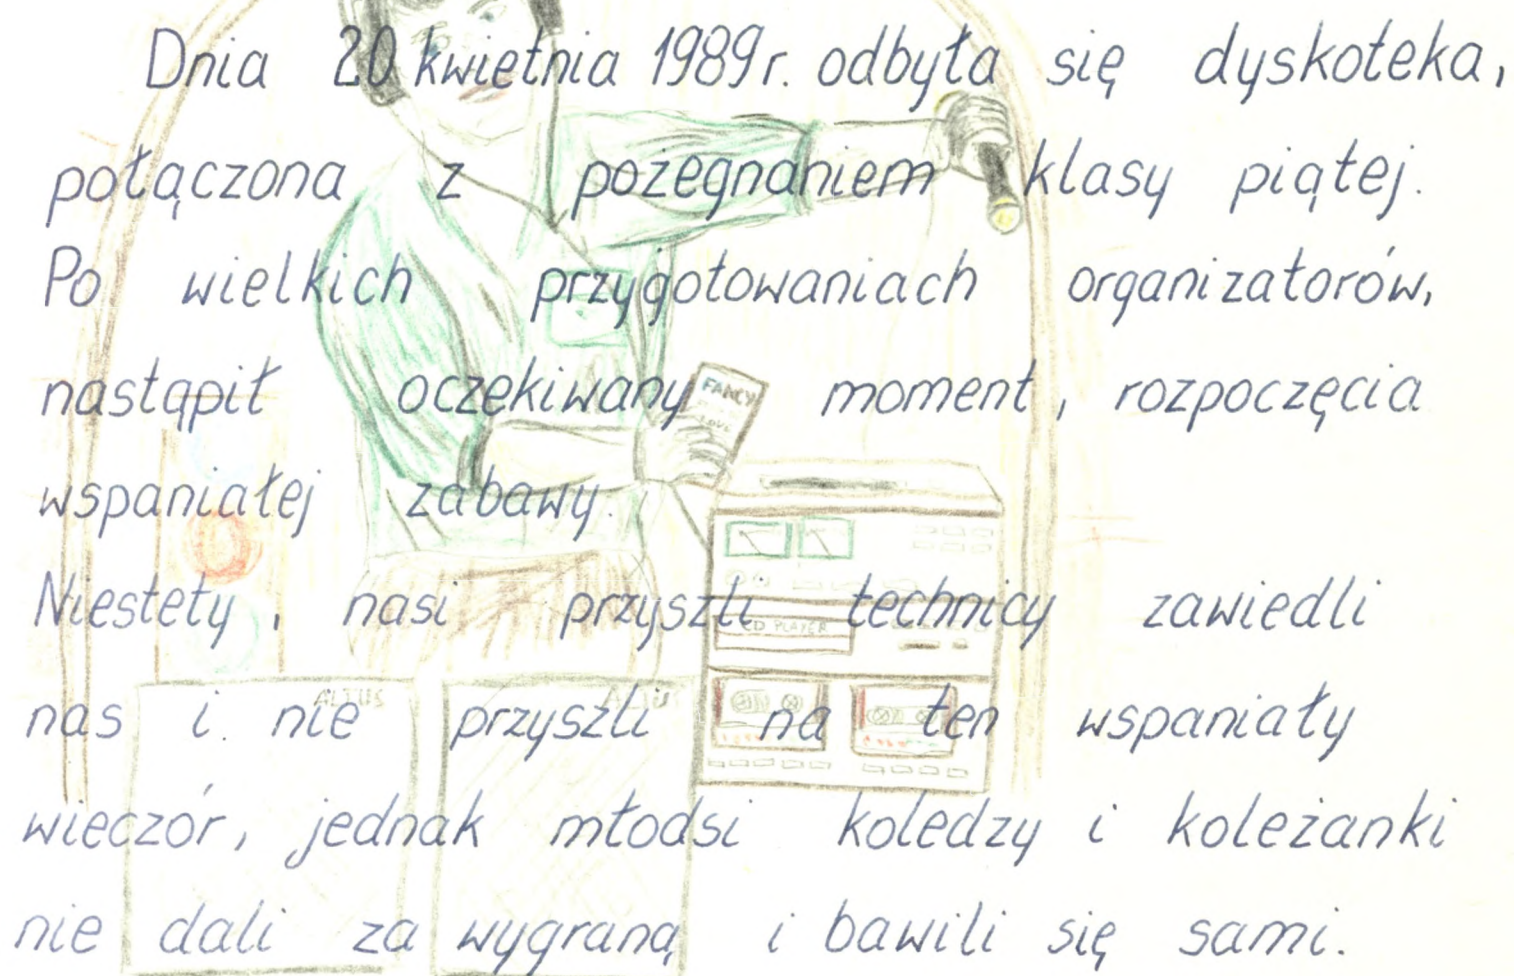 Dnia 20 kwietnia 1989 r. odbyła się dyskoteka,
połączona z pożegnaniem klasy piątej.
Po wielkich przygotowaniach organizatorów,
nastąpił oczekiwany moment, rozpoczęcia
wspaniałej zabawy.
Niestety, nasi przyszli technicy zawiedli
nas i nie przyszli na ten wspaniały
wieczór, jednak młodsi koledzy i koleżanki
nie dali za wygraną i bawili się sami.
FANCY
LOVE
CD PLAYER
ALTUS
ALTUS